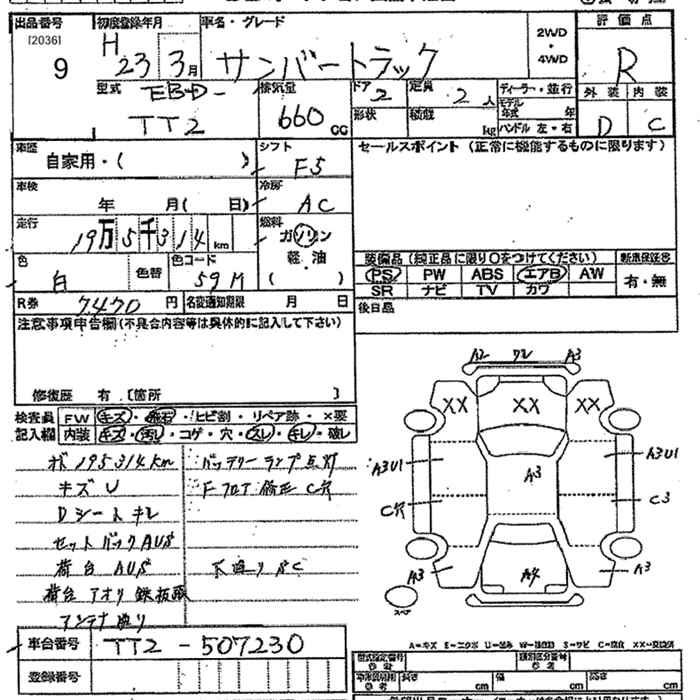 出品番号 初度登録年月 車名・グレード 評価点
[2036] H 23 3月 サンバートラック 2WD・4WD R
9
型式 EBD- 排気量 ドア 2 定員 2人 ディーラー・並行 外装 内装
TT2 660 CC 形状 積載 kg モデル年式 年 D C
ハンドル 左・右
車歴 自家用・( ) シフト F5 セールスポイント(正常に機能するものに限ります)
車検 年 月( 日) 冷房 AC
走行 19万5千314 km 燃料 ガソリン
軽・油
( )
色 白 色替 色コード 59M
装備品(純正品に限り〇をつけてください) 新車保証書
PS PW ABS エアB AW 有・無
SR ナビ TV カワ
R券 7470 円 名変通知期限 月 日 後日品
注意事項申告欄(不具合内容等は具体的に記入して下さい)
修復歴 有 [箇所 ]
検査員 FW キズ・飛石・ヒビ割・リペア跡・×要
記入欄 内装 キズ・汚レ・コゲ・穴・スレ・キレ・破レ
メ 195314km バッテリーランプ点灯
キズU Fフロア修正 C穴
Dシートキレ
セットバックAUS
荷台 AUS 下廻りSC
荷台 アオリ 鉄板
アンテナ
A2 A3
XX XX XX
A3U1 A3 A3U1
C穴 C3
A3 A4 A3
スペア
A=キズ E=エクボ U=凹み S=サビ
車台番号 TT2-507230
登録番号
型式指定番号 参考 類別区分番号 参考
参考 長さ cm 幅 cm 高さ cm